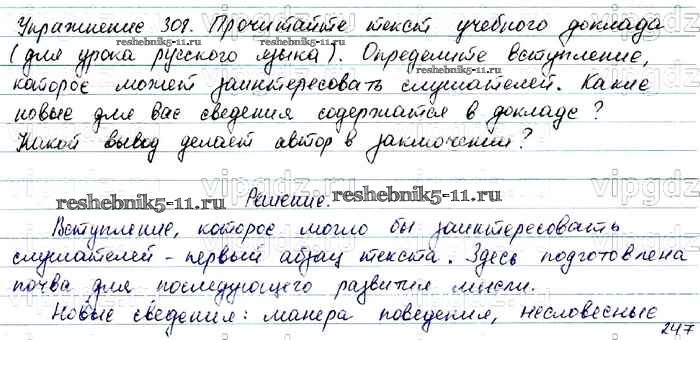 Упражнение 308. Прочитайте текст учебного доклада
(для урока русского языка). Определите вступление,
reshebnik5-11.ru reshebnik5-11.ru
которое может заинтересовать слушателей. Какие
новые для вас сведения содержатся в докладе?
Какой вывод делает автор в заключении?
vipgdz.ru
reshebnik5-11.ru Решение. reshebnik5-11.ru
Вступление, которое могло бы заинтересовать
слушателей - первый абзац текста. Здесь подготовлена
почва для последующего развития мысли.
Новые сведения: манера поведения, несловесные
247